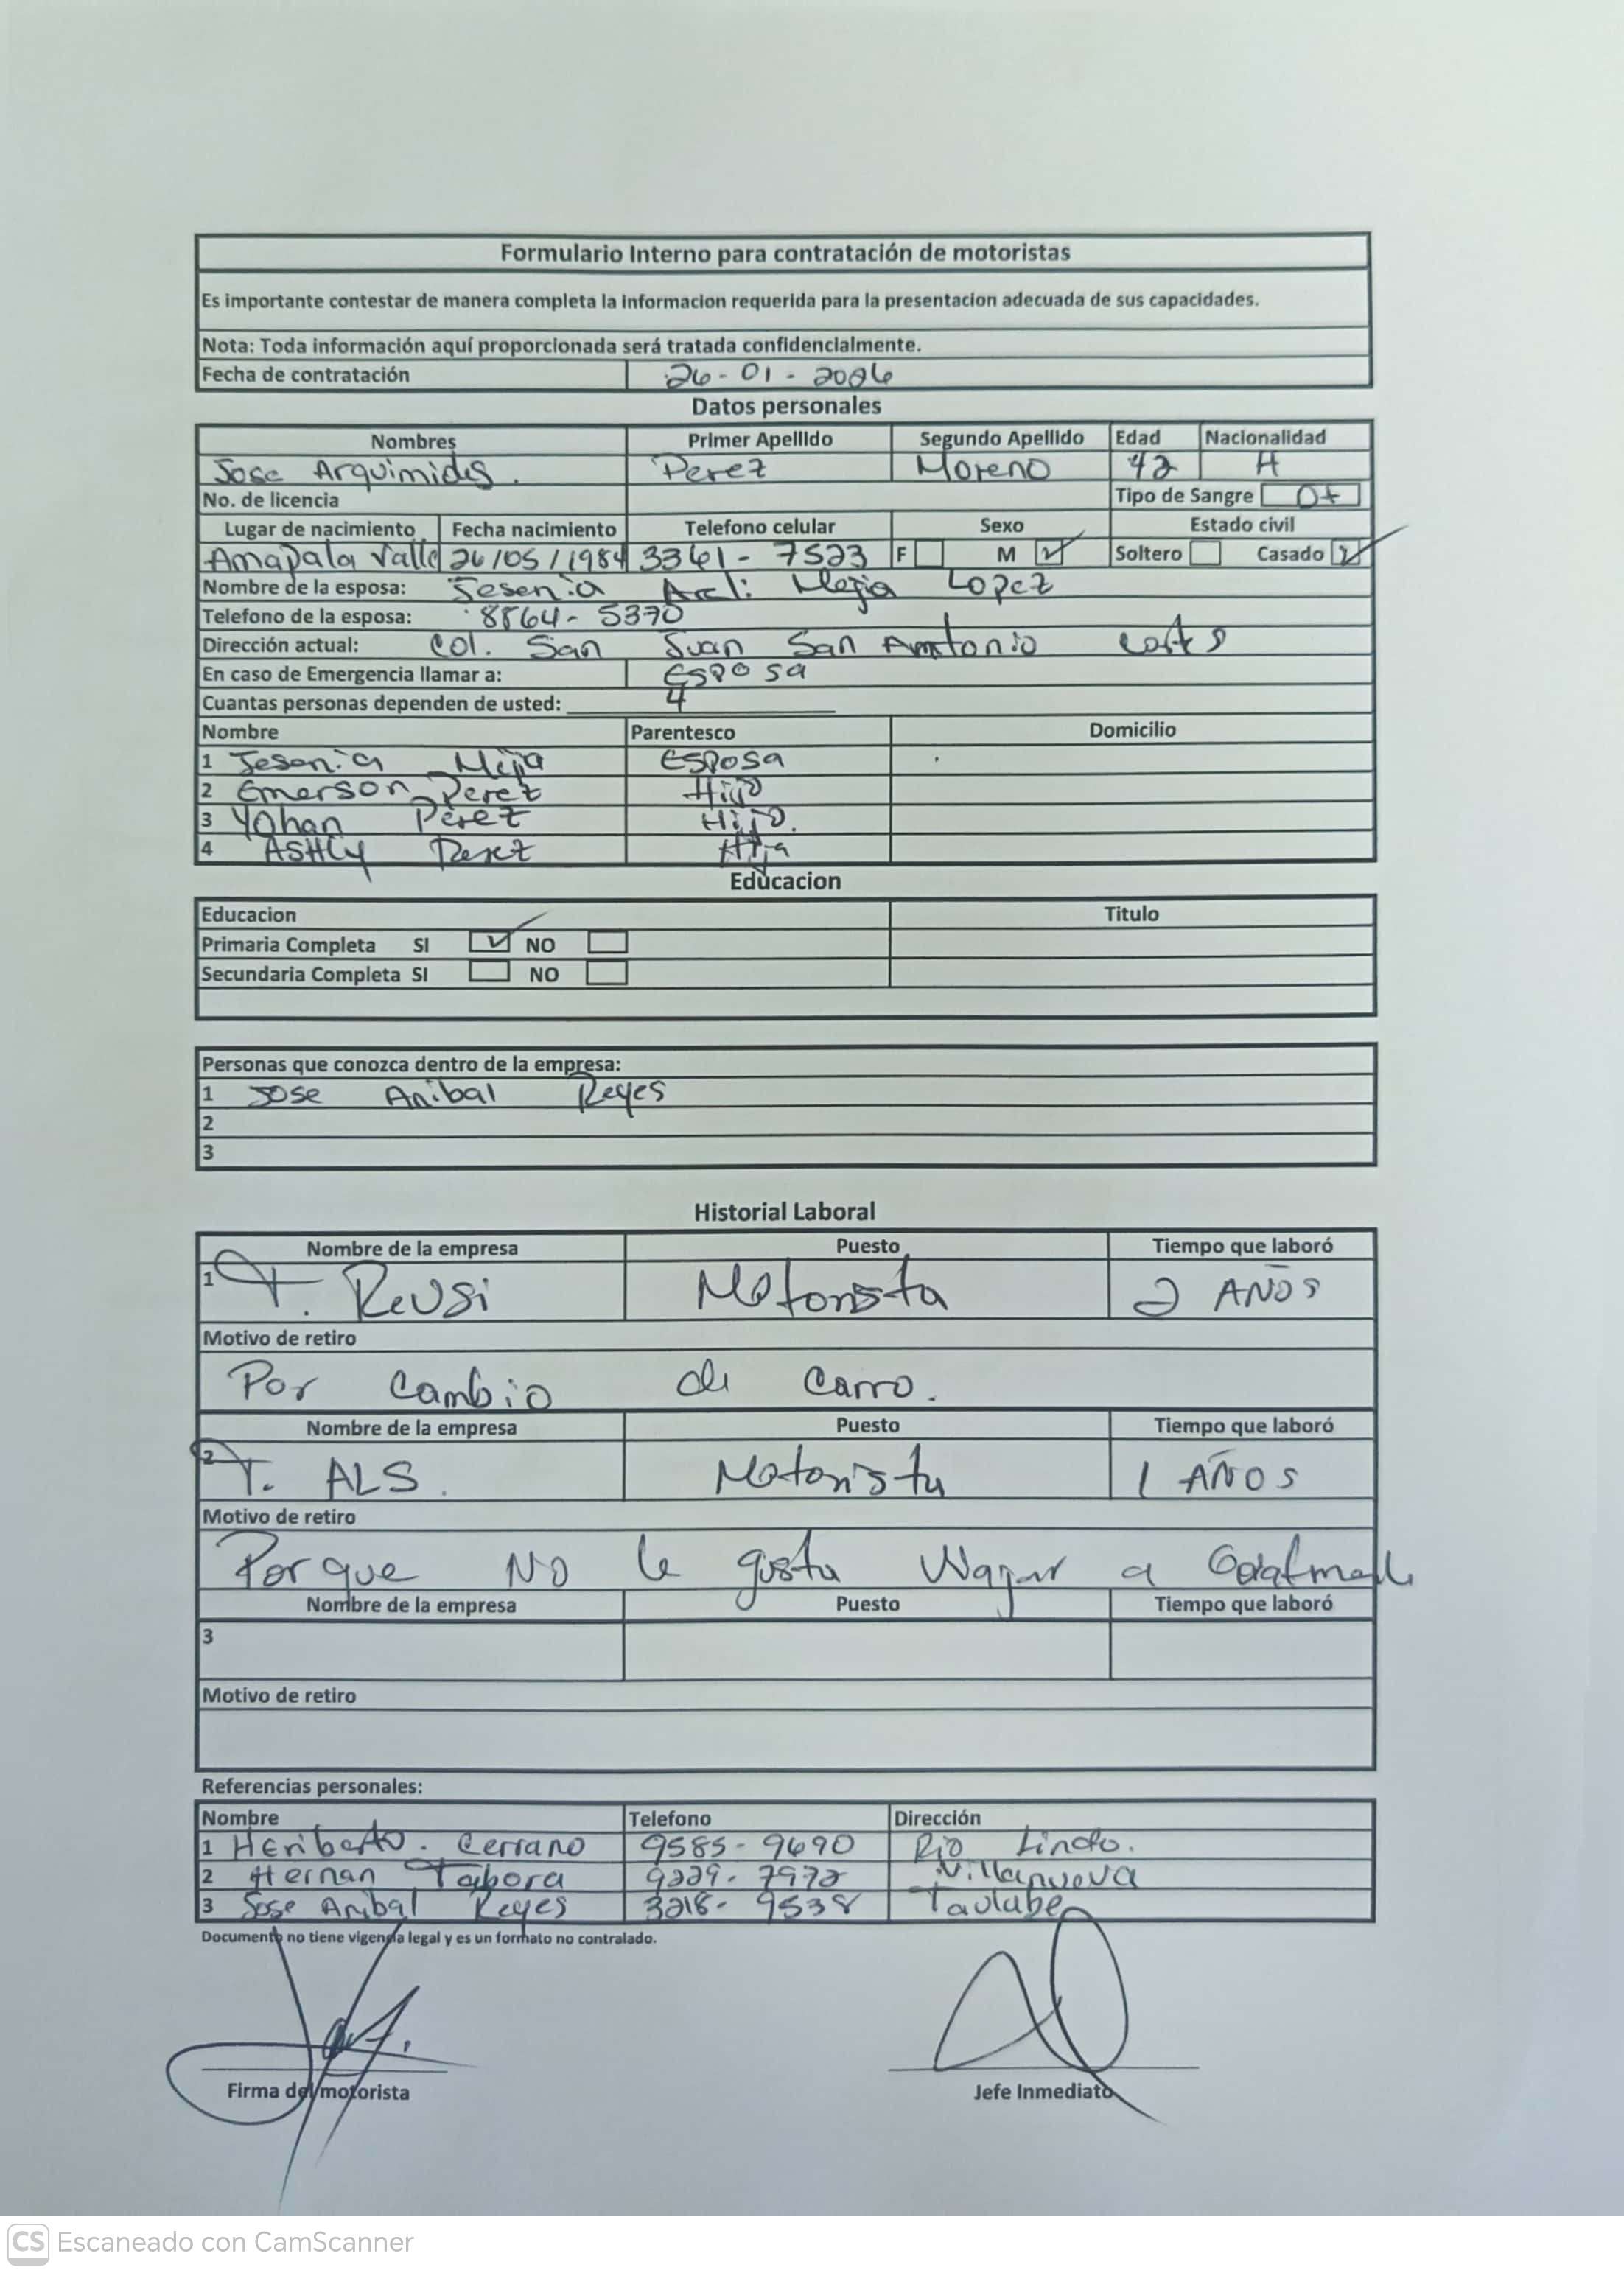 Formulario Interno para contratación de motoristas
Es importante contestar de manera completa la informacion requerida para la presentacion adecuada de sus capacidades.
Nota: Toda información aquí proporcionada será tratada confidencialmente.
Fecha de contratación 26-01-2026
Datos personales
Nombres Primer Apellido Segundo Apellido Edad Nacionalidad
Jose Arquimides. Perez Moreno 42 H
No. de licencia Tipo de Sangre O+
Lugar de nacimiento Fecha nacimiento Telefono celular Sexo Estado civil
Amapala Valle 26/05/1984 3361-7523 F M Soltero Casado
Nombre de la esposa: Jesenia Mejia Lopez
Telefono de la esposa: 8864-5370
Dirección actual: Col. San Juan San Antonio Cortes
En caso de Emergencia llamar a: Esposa
Cuantas personas dependen de usted: 4
Nombre Parentesco Domicilio
1 Jesenia Mejia Esposa
2 Emerson Perez Hijo
3 Yohan Perez Hijo.
4 ASHLy Perez Hija
Educacion
Educacion Titulo
Primaria Completa SI NO
Secundaria Completa SI NO
Personas que conozca dentro de la empresa:
1 Jose Anibal Reyes
2
3
Historial Laboral
Nombre de la empresa Puesto Tiempo que laboró
1 T. Reusi Motorista 2 AÑOS
Motivo de retiro
Por Cambio de Carro.
Nombre de la empresa Puesto Tiempo que laboró
2 T. ALS. Motorista 1 AÑOS
Motivo de retiro
Porque NO le gusta a
Nombre de la empresa Puesto Tiempo que laboró
3
Motivo de retiro
Referencias personales:
Nombre Telefono Dirección
1 Heriberto. Cerrano 9585-9690 Rio Lindo.
2 Hernan Tabora 9229-7972 Villanueva
3 Jose Anibal Reyes 3218-9538 Taulabe
Documento no tiene vigencia legal y es un formato no contralado.
Firma del motorista Jefe Inmediato
CS Escaneado con CamScanner